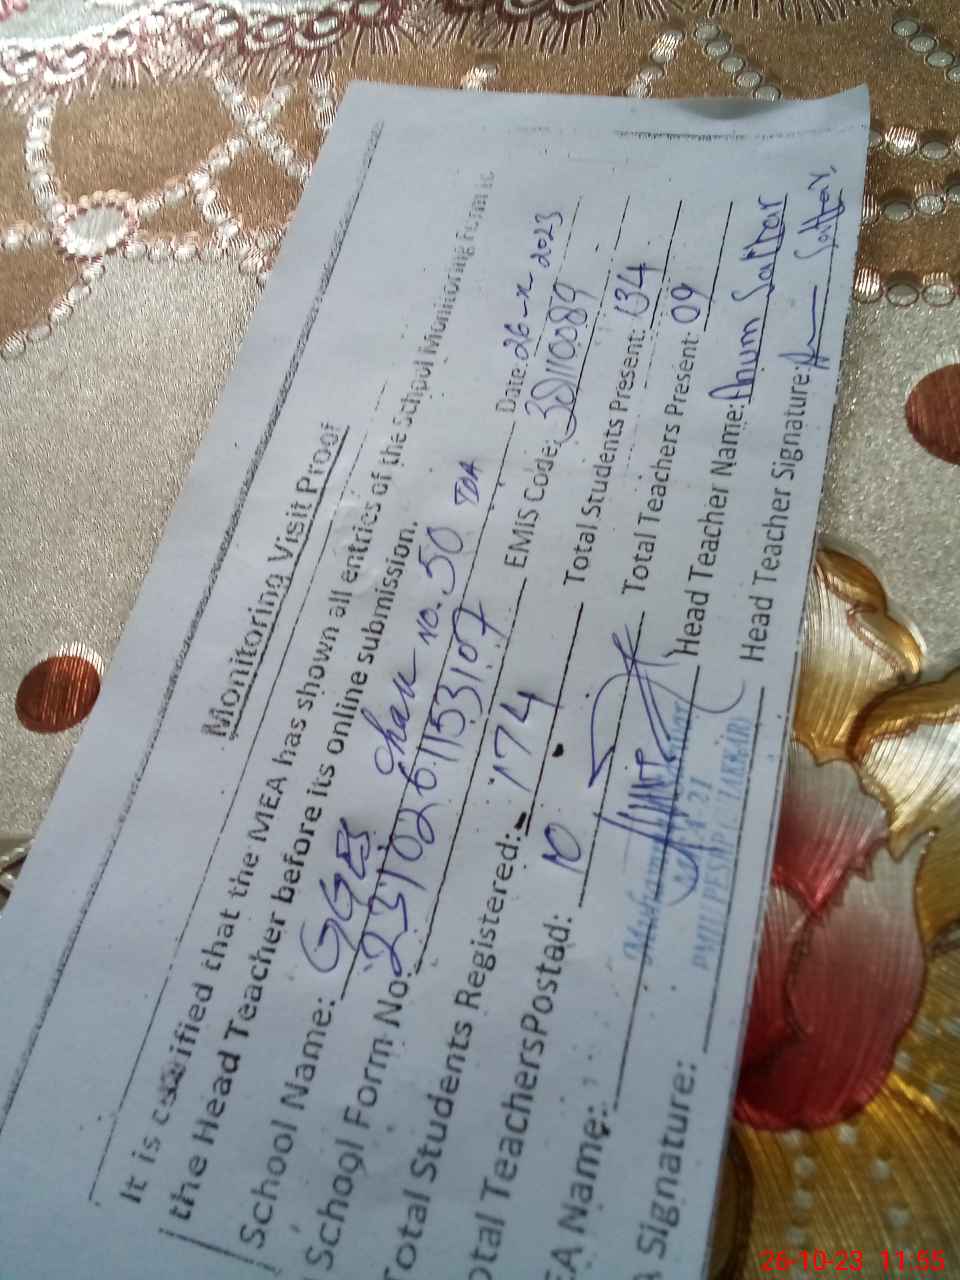 Monitoring Visit Proof
It is certified that the MEA has shown all entries of the School Monitoring Form to
the Head Teacher before its online submission.
School Name: GGES Chak No. 50 TDA Date: 26-x-2023
School Form No: 2310261153107 EMIS Code:
Total Students Registered: 174 Total Students Present: 134
otal TeachersPostad: 10 Total Teachers Present: 09
EA Name: Head Teacher Name: Anum Satthar
A Signature: Head Teacher Signature:
26-10-23 11:55